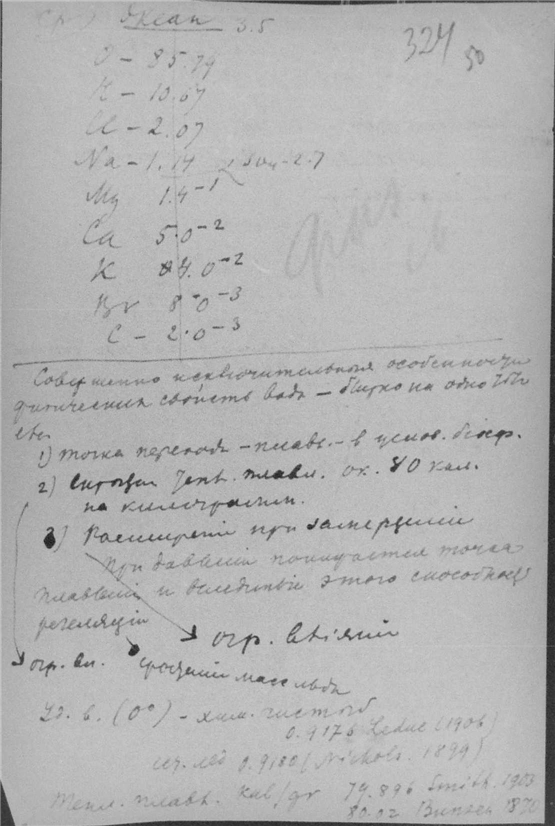 Океан 3.5
324 50
O – 85.79
H – 10.67
Cl – 2.07
Na – 1.14 SO4 – 2.7
Mg 1.4 –1
Ca 5.0 –2
K 4.0 –2
Br 8.0 –3
C – 2.0 –3
Совершенно исключительныя особенности
физических свойств воды –
1) точка перехода – плавл. – в услов. биосф.
2) плавл. ок. 80 кал.
на килограмм.
3) Расширенiе при замерзанiи
При давленiи понижается точка
плавленiя и вследствiе этого способность
регеляцiи
огр. влiянiй
огр. вл. масс льда
Уд. в. (0°) – хим. чистого
0.9176 Leduc (1906)
лёд 0.9180 (Nichols. 1899)
Тепл. плавл. kal/gr 79.896 Smith. 1903
80.02 Bunsen 1870